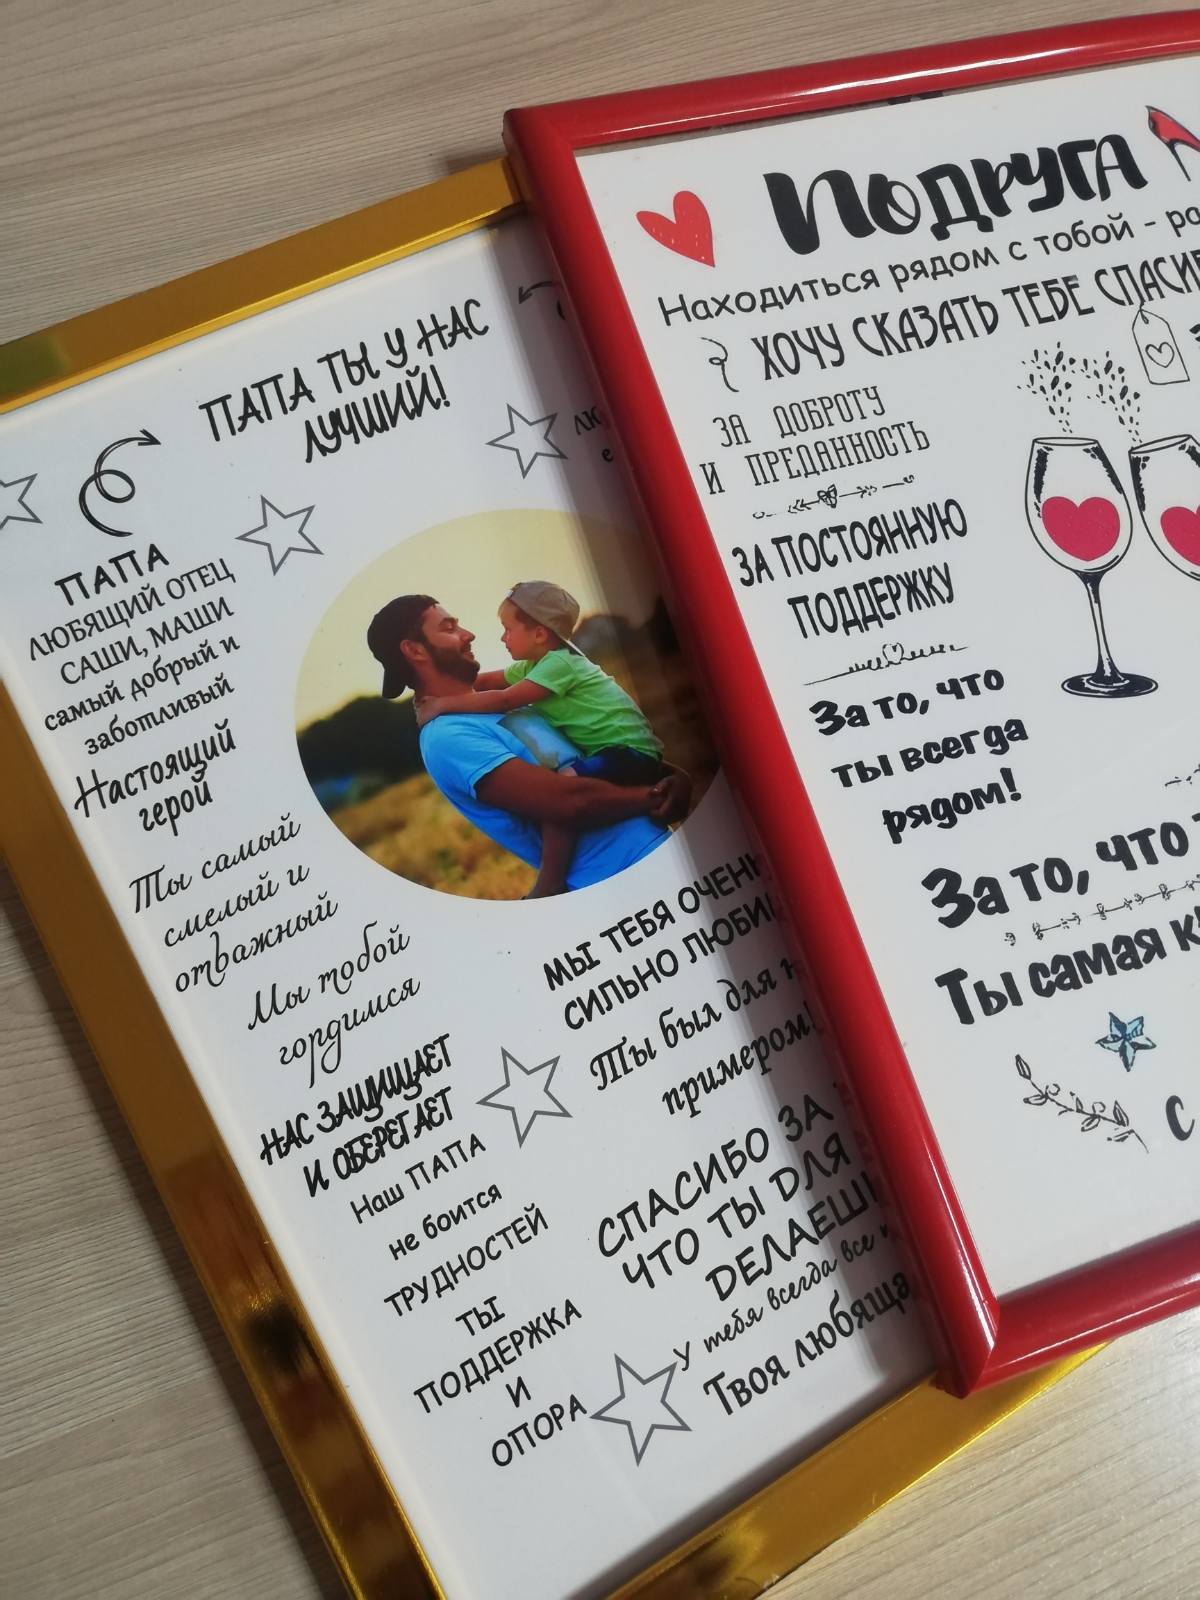 ПАПА ТЫ У НАС
ЛУЧШИЙ!
ПАПА
ЛЮБЯЩИЙ ОТЕЦ
САШИ, МАШИ
самый добрый и
заботливый
Настоящий
герой
Ты самый
смелый и
отважный
Мы тобой
гордимся
НАС ЗАЩИЩАЕТ
И ОБЕРЕГАЕТ
Наш ПАПА
не боится
ТРУДНОСТЕЙ
ТЫ
ПОДДЕРЖКА
И
ОПОРА
МЫ ТЕБЯ ОЧЕНЬ
СИЛЬНО
Ты был для
примером!
СПАСИБО ЗА
ЧТО ТЫ ДЛЯ
У тебя всегда все
Твоя
ПОДРУГА
Находиться рядом с тобой -
ХОЧУ СКАЗАТЬ ТЕБЕ
ЗА ДОБРОТУ
И ПРЕДАННОСТЬ
ЗА ПОСТОЯННУЮ
ПОДДЕРЖКУ
За то, что
ты всегда
рядом!
За то, что
Ты самая
С